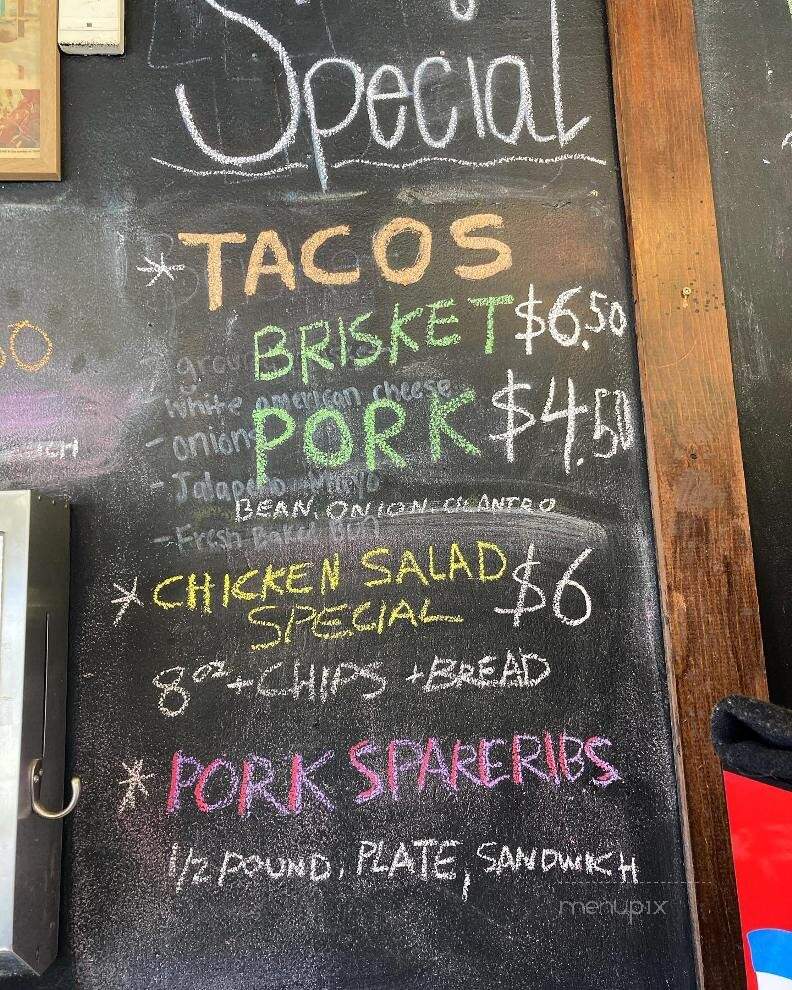 Special
* TACOS
BRISKET $6.50
- white american cheese
PORK $4.50
- onion
- Jalapeño Mayo
BEAN, ONION, CILANTRO
- Fresh Baked Bun
* CHICKEN SALAD $6
SPECIAL
8oz + CHIPS + BREAD
* PORK SPARERIBS
1/2 POUND, PLATE, SANDWICH
menupix